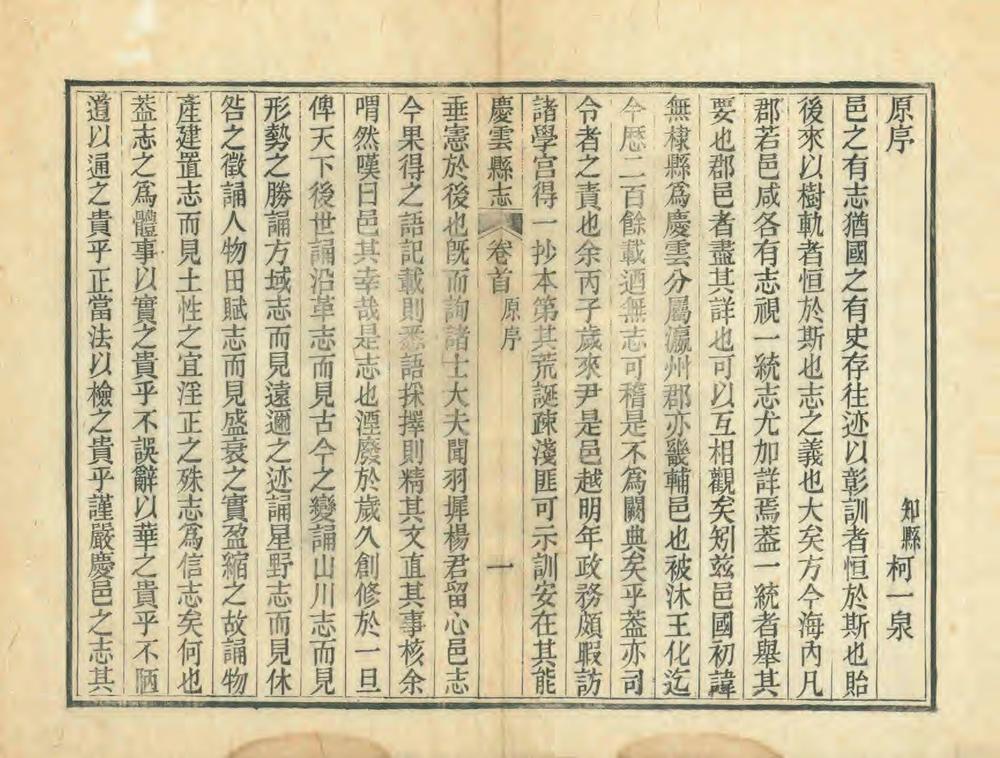 原序
知縣柯一泉
邑之有志猶國之有史存往迹以彰訓者恒於斯也貽
後來以樹軌者恒於斯也志之義也大矣方今海內凡
郡若邑咸各有志視一統志尤加詳焉葢一統者舉其
要也郡邑者盡其詳也可以互相觀矣矧兹邑國初諱
無棣縣爲慶雲分屬瀛州郡亦畿輔邑也被沐王化迄
今歷二百餘載迺無志可稽是不爲闕典矣乎葢亦司
令者之責也余丙子歲來尹是邑越明年政務頗暇訪
諸學宫得一抄本第其荒誕疎淺匪可示訓安在其能
慶雲縣志
卷首
原序
一
垂憲於後也旣而詢諸士大夫聞羽墀楊君留心邑志
今果得之語記載則悉語採擇則精其文直其事核余
喟然嘆曰邑其幸哉是志也湮廢於歲久創修於一旦
俾天下後世誦沿革志而見古今之變誦山川志而見
形勢之勝誦方域志而見遠邇之迹誦星野志而見休
咎之徵誦人物田賦志而見盛衰之實盈縮之故誦物
產建置志而見土性之宜淫正之殊志爲信志矣何也
葢志之爲體事以實之貴乎不誤辭以華之貴乎不陋
道以通之貴乎正當法以檢之貴乎謹嚴慶邑之志其